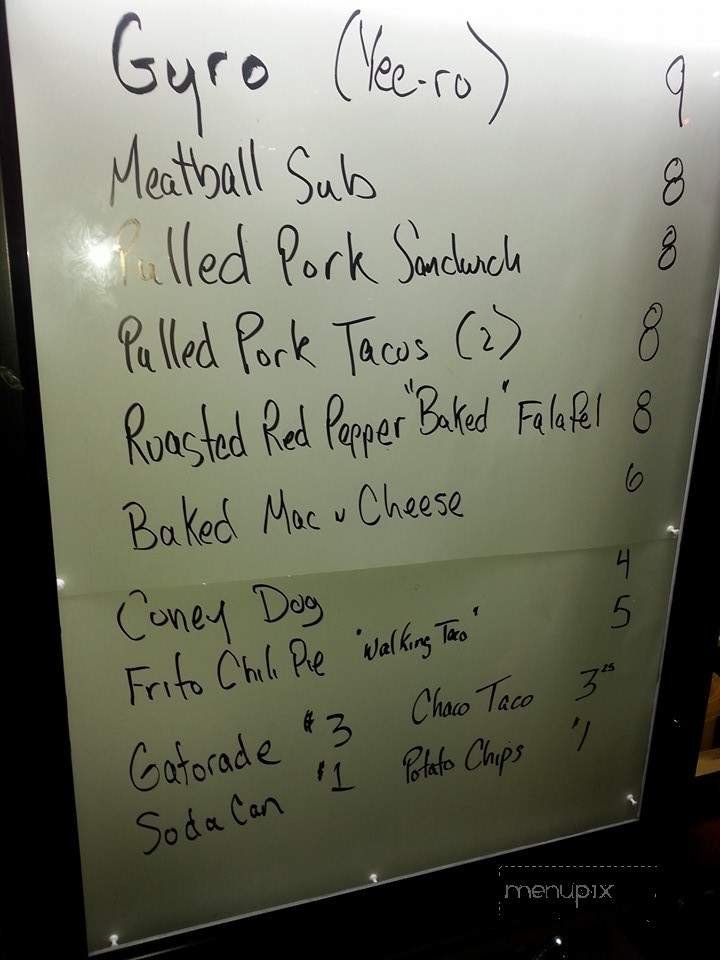 Gyro (Yee-ro) 9
Meatball Sub 8
Pulled Pork Sandwich 8
Pulled Pork Tacos (2) 8
Roasted Red Pepper "Baked" Falafel 8
Baked Mac n Cheese 6
Coney Dog 4
Frito Chili Pie "Walking Taco" 5
Gatorade $3 Choco Taco 3 25
Soda Can $1 Potato Chips $1
menupix